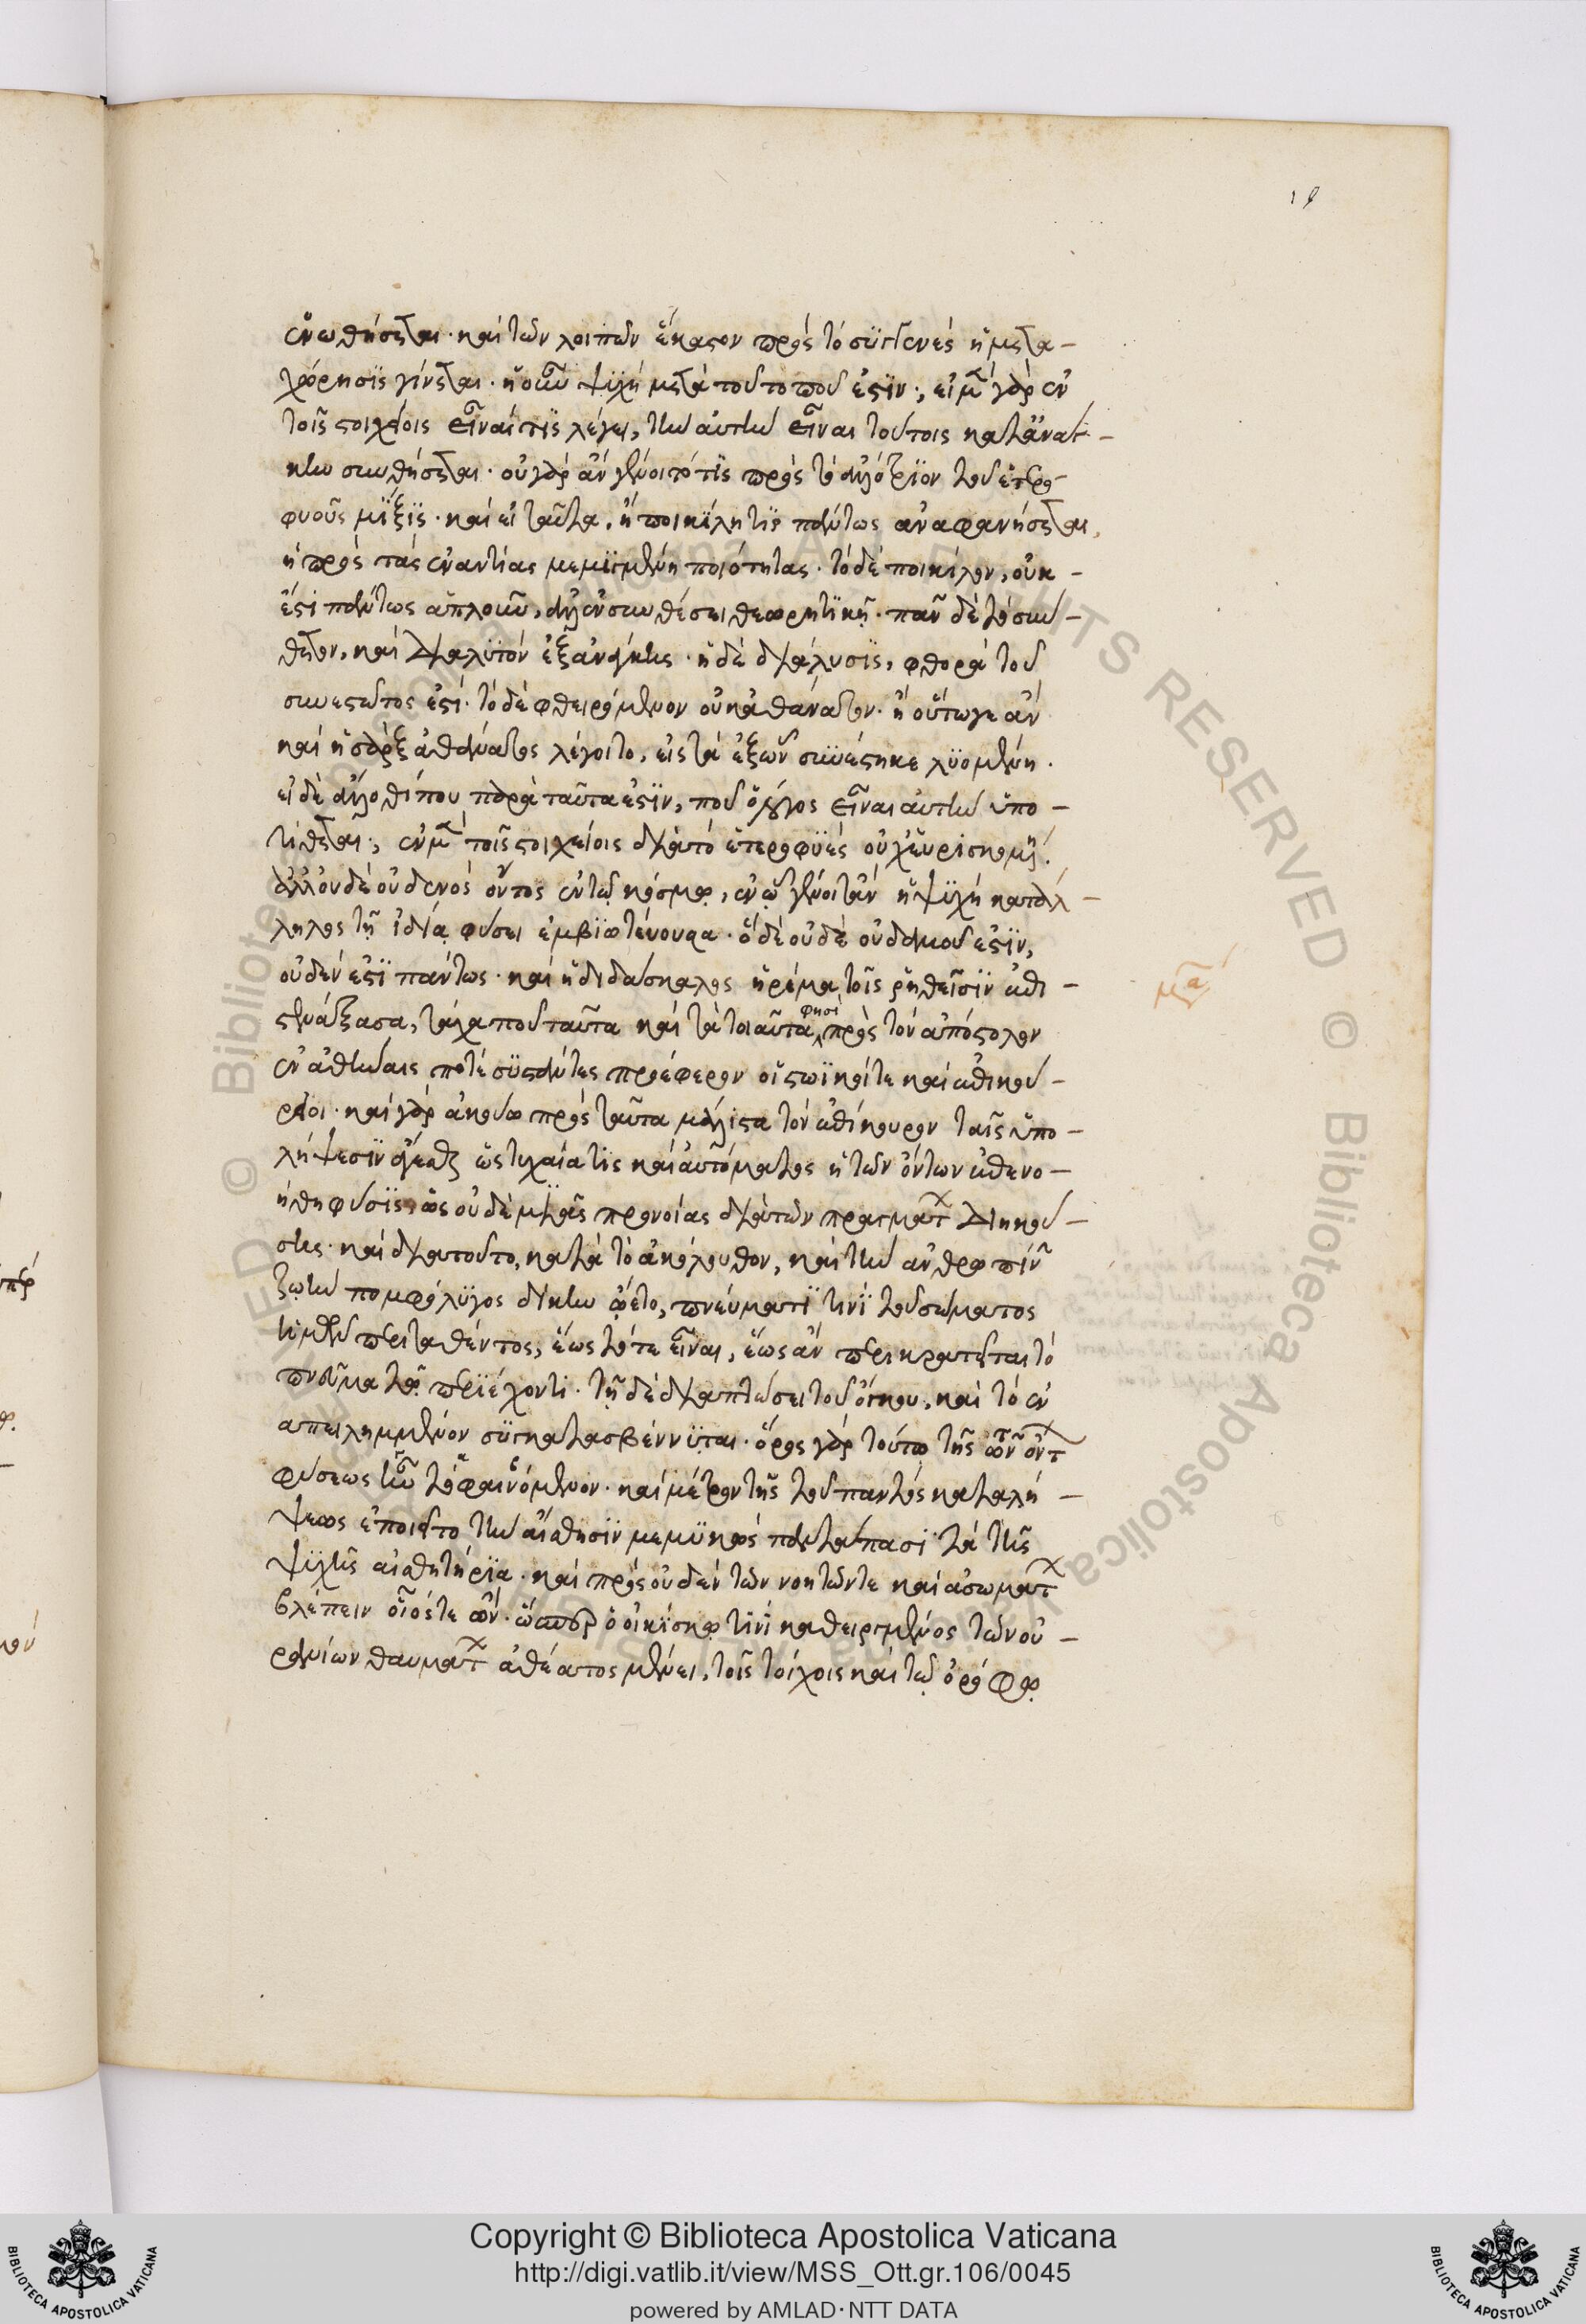 ἑνωθήσεται· καὶ τῶν λοιπῶν ἕκαστον πρὸς τὸ συγγενὲς ἡ μετα-
χώρησις γίνεται. ἡ οὖν ψυχὴ μετὰ τοῦτο ποῦ ἐστίν; εἰ μ̅ γὰρ ἐν
τοῖς στοιχείοις εἶναί τις λέγει, τὴν αὐτὴν εἶναι τούτοις κατ' ἀνάγ-
κην συνθήσεται. οὐ γὰρ ἂν γένοιτό τις πρὸς τὸ ἀλλότριον τοῦ ἑτερο-
φυοῦς μίξις. καὶ εἰ ταῦτα, ἡ ποικίλη τις πάντως ἀναφανήσεται,
ἡ πρὸς τὰς ἐναντίας μεμιγμένη ποιότητας. τὸ δὲ ποικίλον, οὐκ -
ἔστι πάντως ἁπλοῦν, ἀλλ' ἐν συνθέσει θεωρητικῇ. πᾶν δὲ τὸ σύν-
θετον, καὶ διαλυτὸν ἐξ ἀνάγκης. ἡ δὲ διάλυσις, φθορὰ τοῦ
συνεστῶτος ἐστί. τὸ δὲ φθειρόμενον οὐκ ἀθάνατον. ἢ οὕτω γε ἂν
καὶ ἡ σὰρξ ἀθάνατος λέγοιτο, εἰς τὰ ἐξ ὧν συνέστηκε λυομένη.
εἰ δὲ ἄλλο τί που παρὰ ταῦτα ἐστίν, ποῦ ὁ λόγος εἶναι αὐτὴν ὑπο-
τίθεται; ἐν μ̅ τοῖς στοιχείοις διὰ τὸ ἑτεροφυὲς οὐχ' εὑρισκομένην.
ἄλλου δὲ οὐδενὸς ὄντος ἐν τῷ κόσμῳ, ἐν ᾧ γένοιτ' ἂν ἡ ψυχὴ κατάλ-
ληλος τῇ ἰδίᾳ φύσει ἐμβιωτεύουσα. ὃ δὲ οὐδὲ οὐδαμοῦ ἐστίν,
οὐδὲν ἐστὶ πάντως. καὶ ἡ διδάσκαλος ἠρέμα τοῖς ῥηθεῖσιν ἐπι-
στενάξασα, τάχα που ταῦτα καὶ τὰ τοιαῦτα φησὶ πρὸς τὸν ἀπόστολον
ἐν ἀθήναις ποτὲ συστάντες προέφερον οἱ στωικοί τε καὶ ἐπικού-
ρειοι. καὶ γὰρ ἀκούω πρὸς ταῦτα μάλιστα τὸν ἐπίκουρον ταῖς ὑπο-
λήψεσιν φέρεσθαι ὡς τυχαία τις καὶ αὐτόματος ἡ τῶν ὄντων ἐπενο-
ήθη φύσις, ὡς οὐδὲ μιᾶς προνοίας διὰ τῶν πραγμάτ διηκού-
σης. καὶ διὰ τοῦτο, κατὰ τὸ ἀκόλουθον, καὶ τὴν ἀνθρωπίνην
ζωὴν πομφόλυγος δίκην ᾤετο, πνεύματί τινι τοῦ σώματος
ἡμῶν περιταθέντος, ἕως τότε εἶναι, ἕως ἂν περικρατεῖται τὸ
πνεῦμα τῷ περιέχοντι. τῇ δὲ διαπτώσει τοῦ ὄγκου, καὶ τὸ ἐν
απειλημμένον συγκατασβέννυται. ὅρος γὰρ τούτῳ τῆς τῶν ὄντ
φύσεως ἦν τὸ φαινόμενον. καὶ μέτρον τῆς τοῦ παντὸς καταλή-
ψεως ἐποιεῖτο τὴν αἴσθησιν μεμυκὼς παντάπασι τὰ τῆς
ψυχῆς αἰσθητήρια. καὶ πρὸς οὐδὲν τῶν νοητῶν τε καὶ ἀσωμάτ
βλέπειν οἷός τε ὤν. ὥσπερ ὁ οἰκίσκῳ τινὶ καθειργμένος τῶν οὐ-
ρανίων θαυμάτ ἀθέατος μένει, τοῖς τοίχοις καὶ τῷ ὀρόφῳ
Copyright © Biblioteca Apostolica Vaticana
http://digi.vatlib.it/view/MSS_Ott.gr.106/0045
powered by AMLAD·NTT DATA
BIBLIOTECA APOSTOLICA VATICANA
BIBLIOTECA APOSTOLICA VATICANA